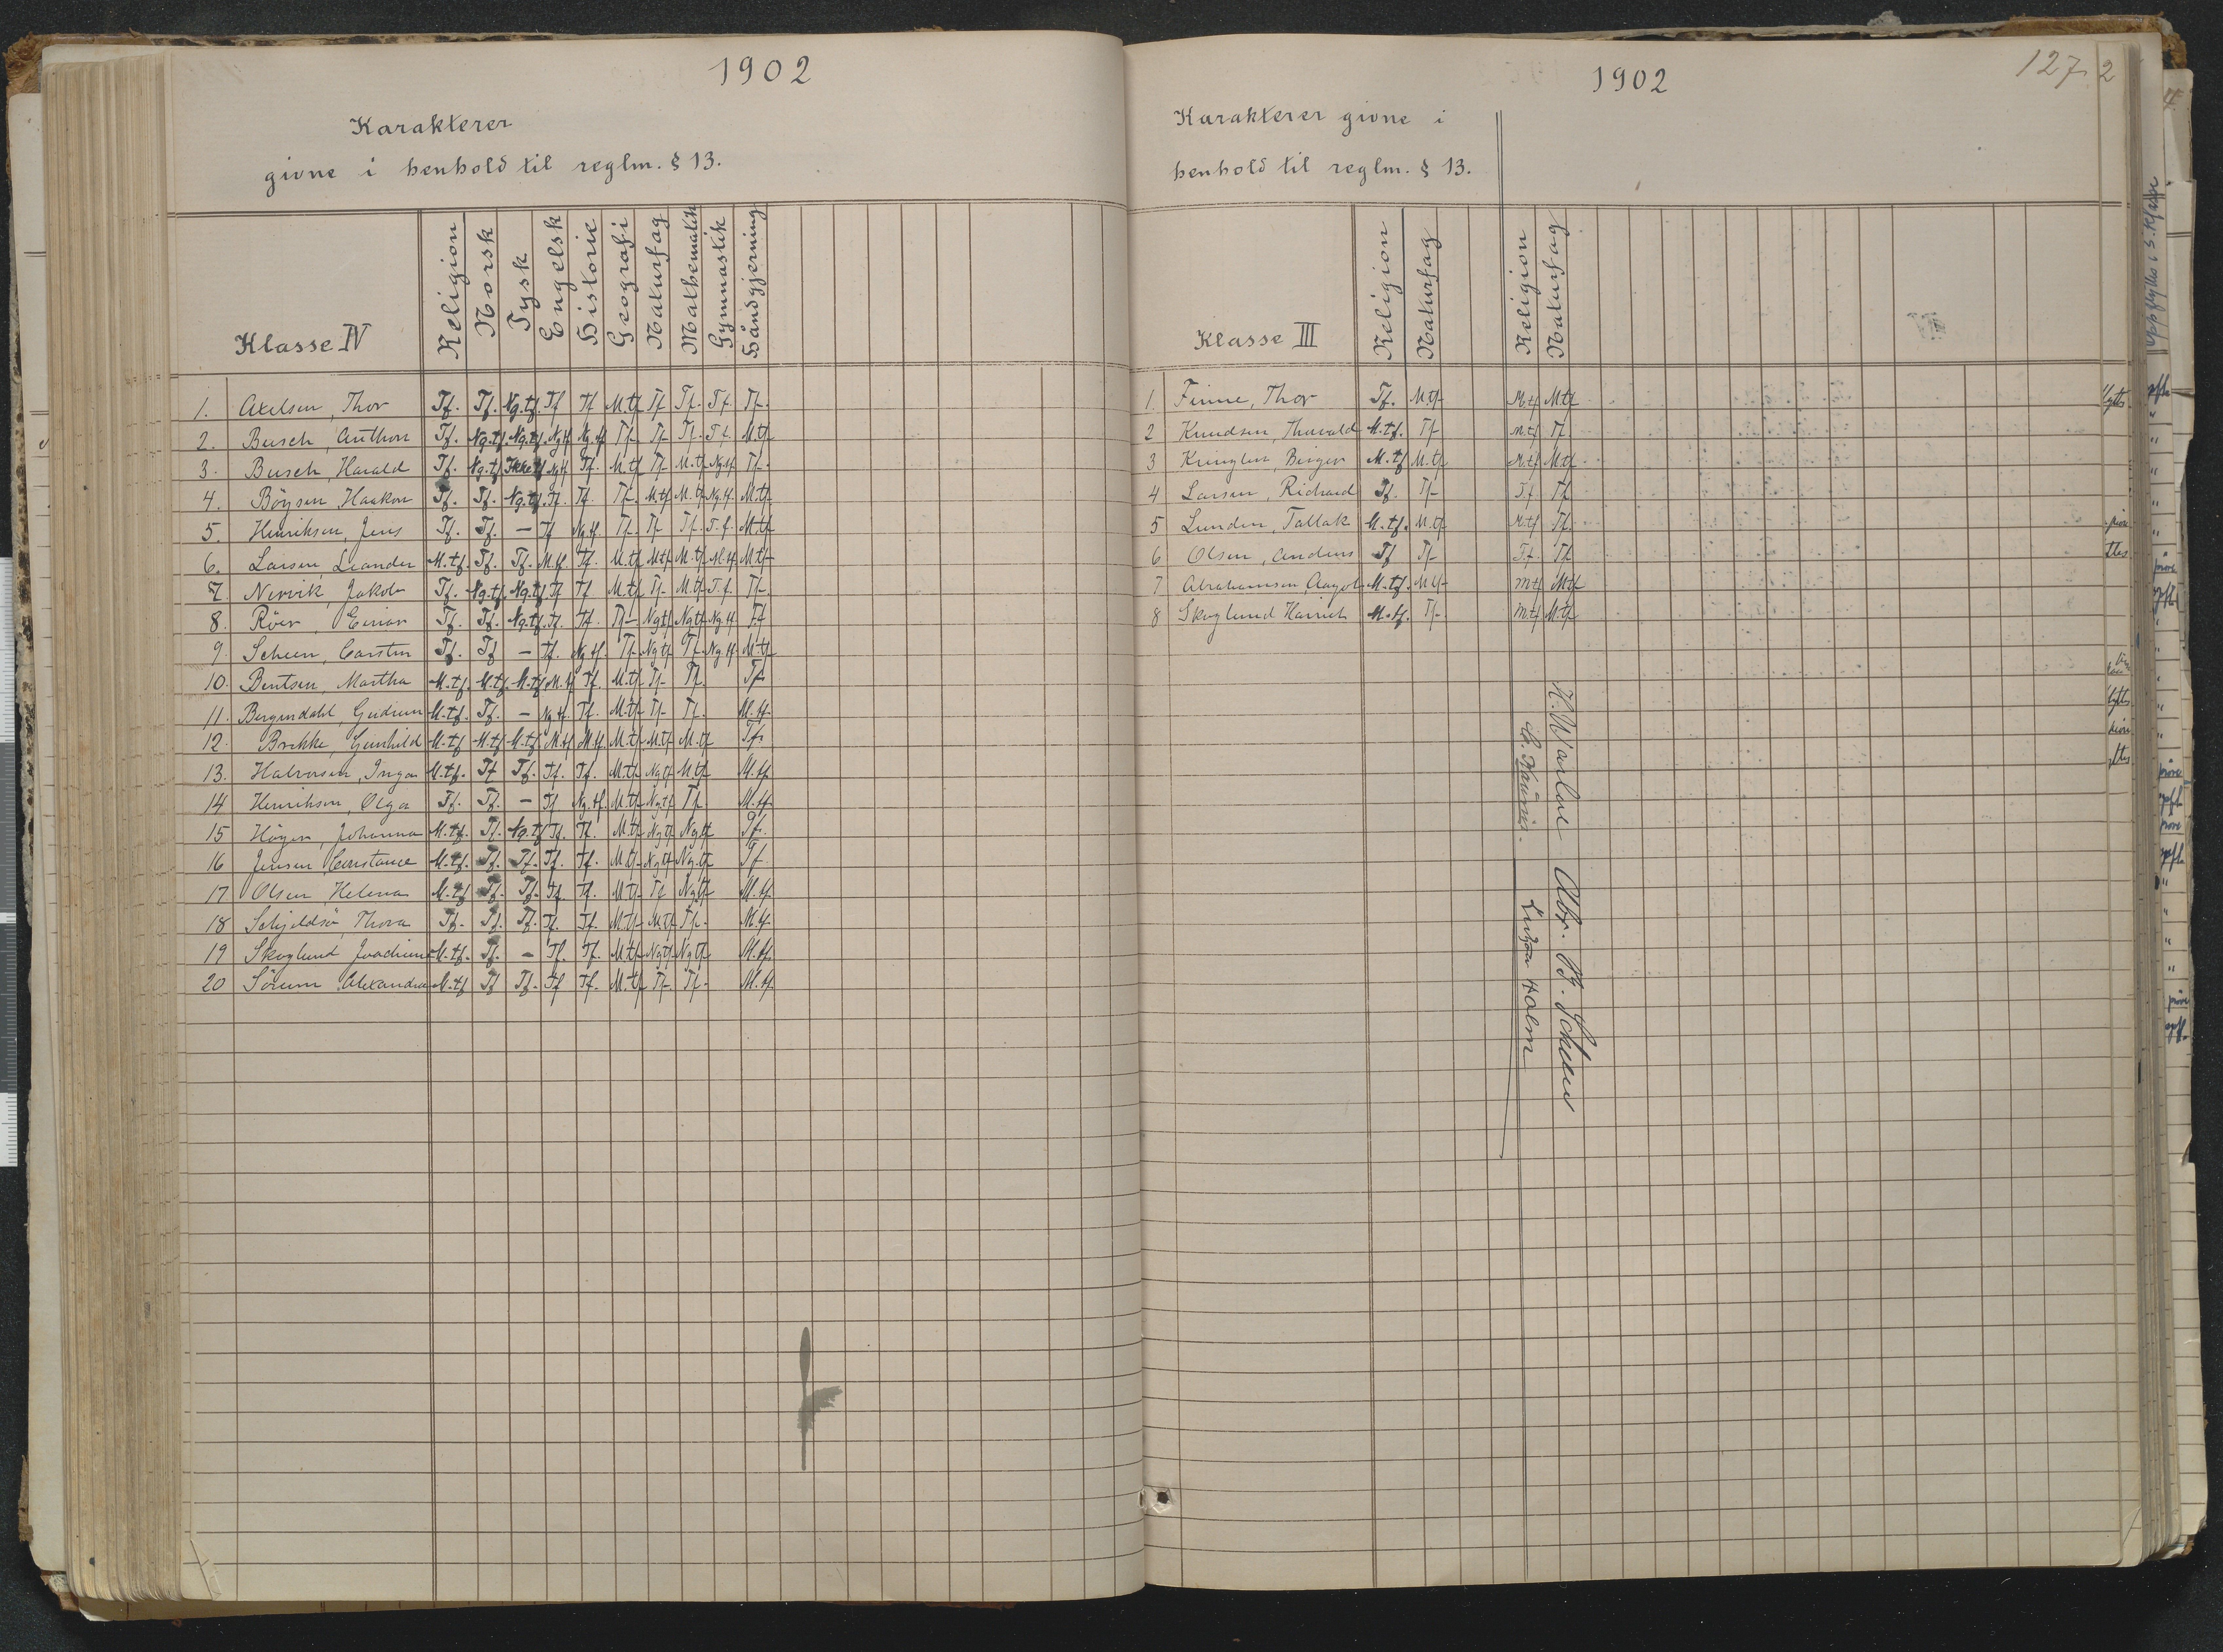 1902
Karakterer
givne i henhold til reglm. § 13.
Klasse IV Religion Norsk Tysk Engelsk Historie Geografi Naturfag Mathematik Gymnastik Håndgjerning
1. Axelsen, Thor Tf. Tf. Ng.tf. Tf Tf M.tf Tf Tf. Tf. Tf.
2. Busch, Anthon Tf. Ng.tf. Ng.tf. Ng.tf Ng.tf Tf Tf Tf. T.f. M.tf
3. Busch, Harald Tf. Ng.tf Ikke tf Ng.tf Tf. M.tf Tf M.tf Ng.tf Tf.
4. Böysen, Haakon Tf. Tf. Ng.tf. Tf. Tf. Tf. M.tf M.tf Ng.tf. M.tf
5. Henriksen, Jens Tf. Tf. — Tf Ng.tf. Tf Tf Tf. T.f. M.tf
6. Larsen, Leander M.tf. Tf. Tf. M.tf. Tf. M.tf M.tf M.tf M.tf M.tf
7. Nervik, Jakob Tf. Ng.tf. Ng.tf. Tf Tf M.tf Tf M.tf T.f. Tf
8. Röer, Einar Tf. Tf. Ng.tf. Tf. Tf. Tf Ng.tf Ng.tf Ng.tf Tf
9. Scheen, Carsten Tf. Tf — Tf. Ng.tf. Tf Ng.tf Tf. Ng.tf. M.tf
10. Bentsen, Martha M.tf. M.tf. M.tf. M.tf Tf. M.tf Tf Tf. Tf
11. Bergendahl, Gudrun M.tf. Tf. — Ng.tf. Tf. M.tf Tf Tf. M.tf.
12. Brekke, Gunhild M.tf M.tf M.tf. M.tf M.tf M.tf M.tf M.tf Tf.
13. Halvorsen, Inga M.tf. Tf Tf. Tf. Tf. M.tf Ng.tf M.tf M.tf.
14 Henriksen, Olga Tf. Tf. — Tf Ng.tf. M.tf Ng.tf Tf. M.tf.
15 Höyer, Johanna M.tf. Tf. Ng.tf Tf. Tf. M.tf Ng.tf Ng.tf Tf.
16 Jensen, Constance M.tf. Tf. Tf. Tf. Tf. M.tf Ng.tf Ng.tf Tf
17 Olsen, Helena M.tf Tf. Tf. Tf Tf. M.tf Tf Ng.tf M.tf.
18 Schjeldsö, Thora Tf. Tf. Tf. Tf. Tf. M.tf M.tf Tf. M.tf.
19 Skoglund, M.tf. Tf. — Tf. Tf. M.tf Ng.tf Ng.tf M.tf.
20 Sörum, Alexandra M.tf Tf Tf. Tf Tf. M.tf Tf Tf. M.tf.
1902
127
2
Karakterer givne i
henhold til reglm. § 13.
Klasse III Religion Naturfag Religion Naturfag
1. Finne, Thor Tf. M.tf M.tf M.tf
2 Knudsen, Thorvald M.tf. Tf M.tf Tf
3 Birger M.tf M.tf M.tf M.tf
4 Larsen, Richard Tf. Tf Tf Tf
5 Lunden, Tallak M.tf. M.tf M.tf Tf.
6 Olsen, Anders Tf Tf Tf Tf
7 Abrahamsen, Aagot M.tf. M.tf M.tf M.tf
8 Skoglund M.tf. Tf M.tf M.tf
Abr. B. Scheen
Holm